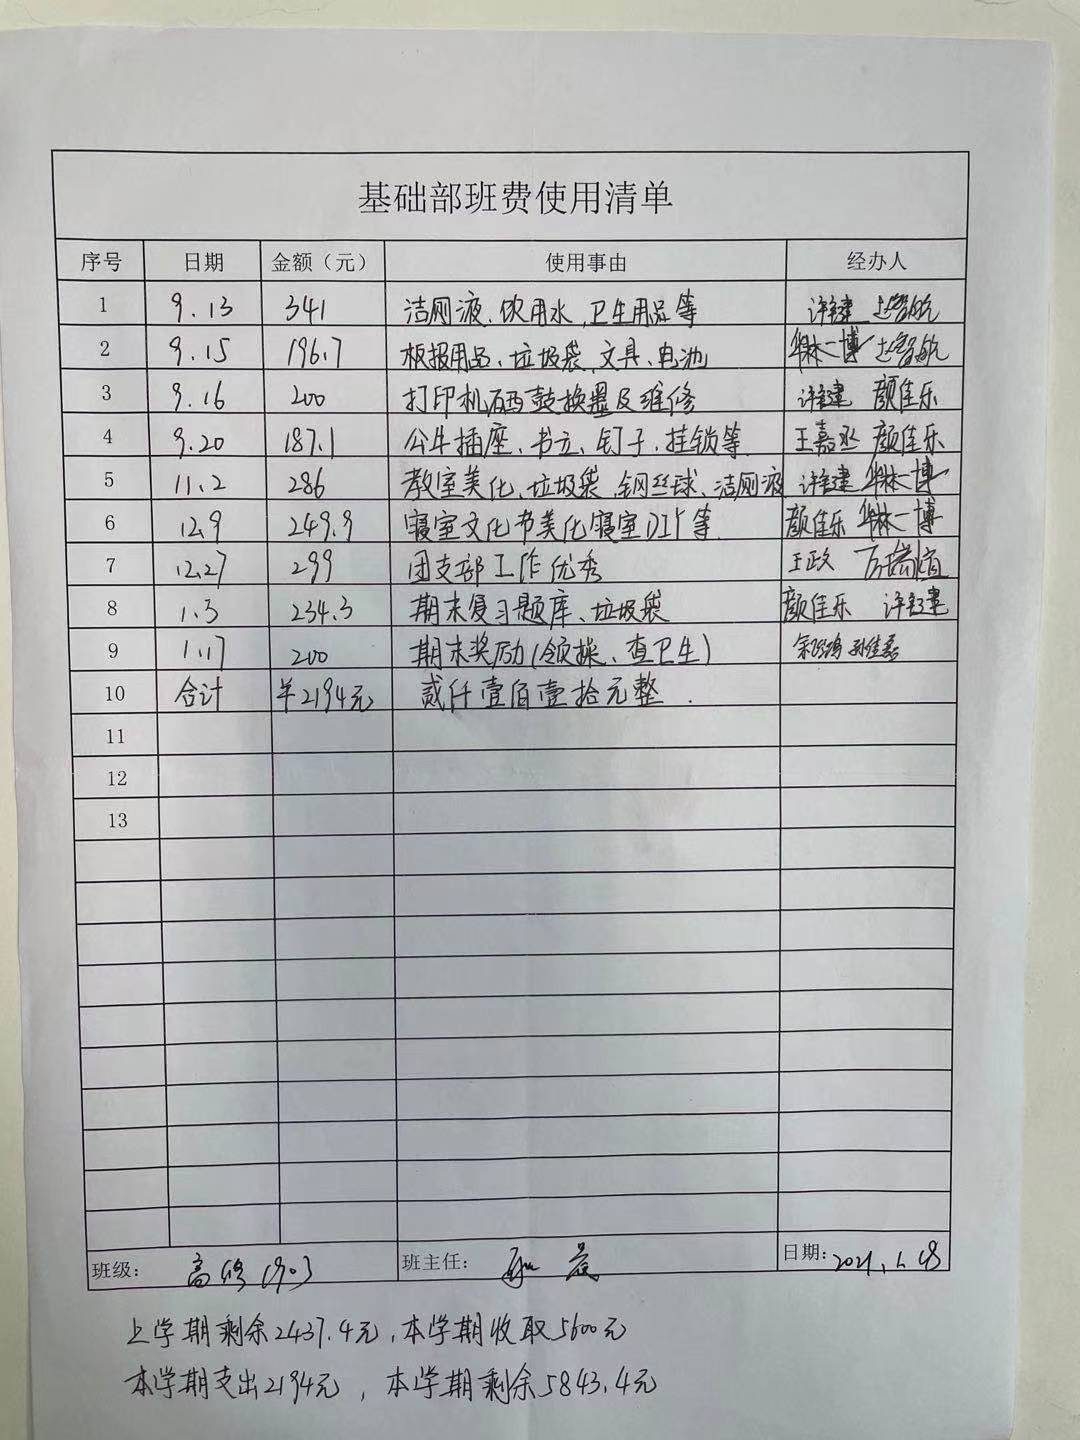 基础部班费使用清单
序号 日期 金额（元） 使用事由 经办人
1 9.13 341 洁厕液、饮用水、卫生用品等
2 9.15 196.7 板报用品、垃圾袋、文具、电池 华林一博
3 9.16 200 打印机硒鼓换墨及维修 颜佳乐
4 9.20 187.1 公牛插座、书立、钉子、挂锁等 王嘉丞 颜佳乐
5 11.2 286 教室美化、垃圾袋、钢丝球、洁厕液 华林一博
6 12.9 249.9 寝室文化节美化寝室DIY等 颜佳乐 华林一博
7 12.27 299 团支部工作优秀 王政
8 1.3 234.3 期末复习题库、垃圾袋 颜佳乐
9 1.17 200 期末奖励(领操、查卫生)
10 合计 ¥2194元 贰仟壹佰壹拾元整
11
12
13
班级： 高修1903 班主任： 日期：2021.1.18
上学期剩余2437.4元，本学期收取5600元
本学期支出2194元，本学期剩余5843.4元